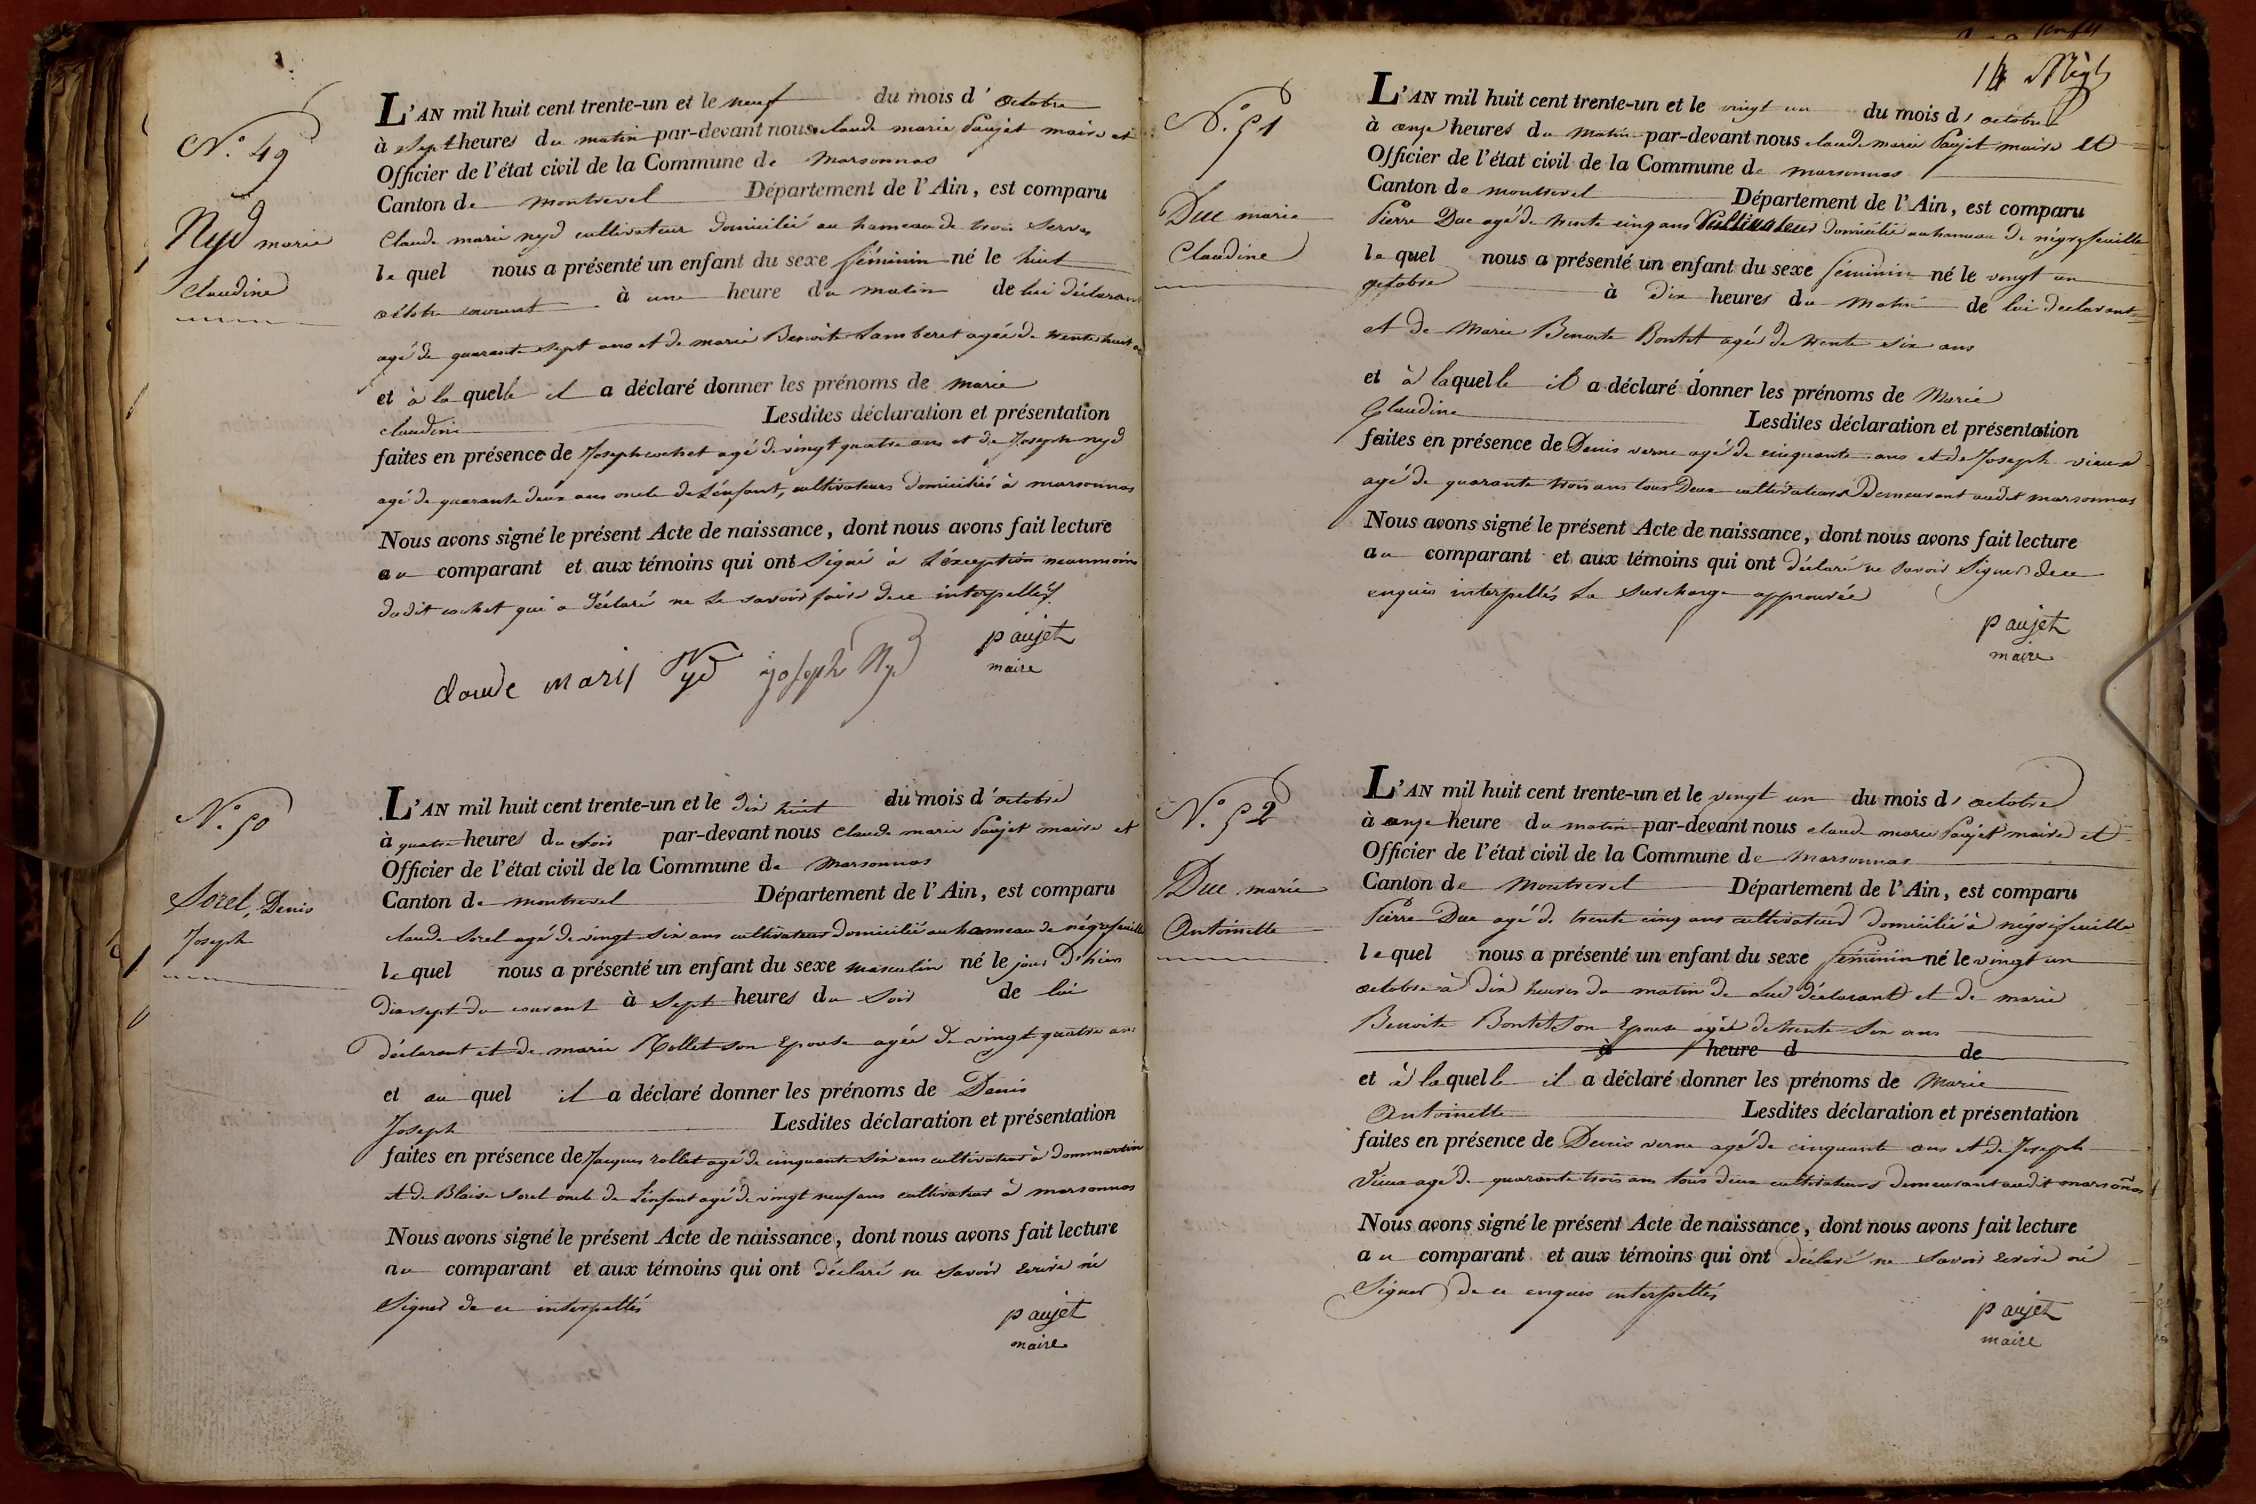 N.° 49
Nyd marie
Claudine
L'AN mil huit cent trente-un et le neuf du mois d'octobre
à sept heures du matin par-devant nous claude marie Paujet maire et
Officier de l'état civil de la Commune de marsonnas
Canton de montrevel Département de l'Ain, est comparu
Claude marie nyd cultivateur domicilié au hameau de trois serves
lequel nous a présenté un enfant du sexe féminin né le huit
octobre courant à une heure du matin de lui déclarant
agé de quarante sept ans et de marie Benoite Lamberet agée de trente huit ans
et à la quelle il a déclaré donner les prénoms de marie
claudine Lesdites déclaration et présentation
faites en présence de Joseph cochet agé de vingt quatre ans et de Joseph nyd
agé de quarante deux ans oncle de L'énfant, cultivateurs domiciliés à marsonnas
Nous avons signé le présent Acte de naissance, dont nous avons fait lecture
au comparant et aux témoins qui ont Signé à L'éxception néanmoins
dudit cochet qui a déclaré ne Le savoir faire de ce interpellés
claude marij Nyd joseph Nyd paujet
maire
N.° 50
Sorel, Denis
Joseph
L'AN mil huit cent trente-un et le dix huit du mois d'octobre
à quatre heures du soir par-devant nous claude marie Paujet maire et
Officier de l'état civil de la Commune de marsonnas
Canton de montrevel Département de l'Ain, est comparu
claude Sorel agé de vingt six ans cultivateur domicilié au hameau de négrefeuille
lequel nous a présenté un enfant du sexe masculin né le jour D'hier
dix sept du courant à sept heures du soir de lui
déclarant et de marie Rollet son Epouse agée de vingt quatre ans
et au quel il a déclaré donner les prénoms de Denis
Joseph Lesdites déclaration et présentation
faites en présence de Jacques rollet agé de cinquante six ans cultivateur à dommartin
et de Blaise Sorel oncle de L'énfant agé de vingt neuf ans cultivateur à marsonnas
Nous avons signé le présent Acte de naissance, dont nous avons fait lecture
au comparant et aux témoins qui ont déclaré ne savoir écrire ni
Signer de ce interpellés
paujet
maire
14
N.° 51
Duc marie
Claudine
L'AN mil huit cent trente-un et le vingt un du mois d'octobre
à onze heures du matin par-devant nous claude marie Paujet maire et
Officier de l'état civil de la Commune de marsonnas
Canton de montrevel Département de l'Ain, est comparu
Pierre Duc agé de trente cinq ans Cultivateur domicilié au hameau de négrefeuille
lequel nous a présenté un enfant du sexe féminin né le vingt un
octobre à dix heures du matin de lui declarant
et de Marie Benoite Bontet agée de trente six ans
et à laquelle il a déclaré donner les prénoms de Marie
Claudine Lesdites déclaration et présentation
faites en présence de Denis verne agé de cinquante ans et de Joseph vieux
agé de quarante trois ans tous Deux cultivateurs Demeurant audit marsonnas
Nous avons signé le présent Acte de naissance, dont nous avons fait lecture
au comparant et aux témoins qui ont déclaré ne savoir signer de ce
enquis interpellés La surcharge approuvée
paujet
maire
N.° 52
Duc marie
Antoinette
L'AN mil huit cent trente-un et le vingt un du mois d'octobre
à onze heure du matin par-devant nous claude marie Paujet maire et
Officier de l'état civil de la Commune de marsonnas
Canton de Montrevel Département de l'Ain, est comparu
Pierre Duc agé de trente cinq ans cultivateur domicilié à négrefeuille
lequel nous a présenté un enfant du sexe féminin né le vingt un
octobre à dix heures du matin de Lui déclarant et de marie
Benoite Bontet son Epouse agée de trente six ans
à heure d de
et à laquelle il a déclaré donner les prénoms de Marie
Antoinette Lesdites déclaration et présentation
faites en présence de Denis verne agé de cinquante ans et de Joseph
Vieux agé de quarante trois ans tous deux cultivateurs demeurant audit marsonnas
Nous avons signé le présent Acte de naissance, dont nous avons fait lecture
au comparant et aux témoins qui ont déclaré ne savoir écrire ni
Signer de ce enquis interpellés
paujet
maire